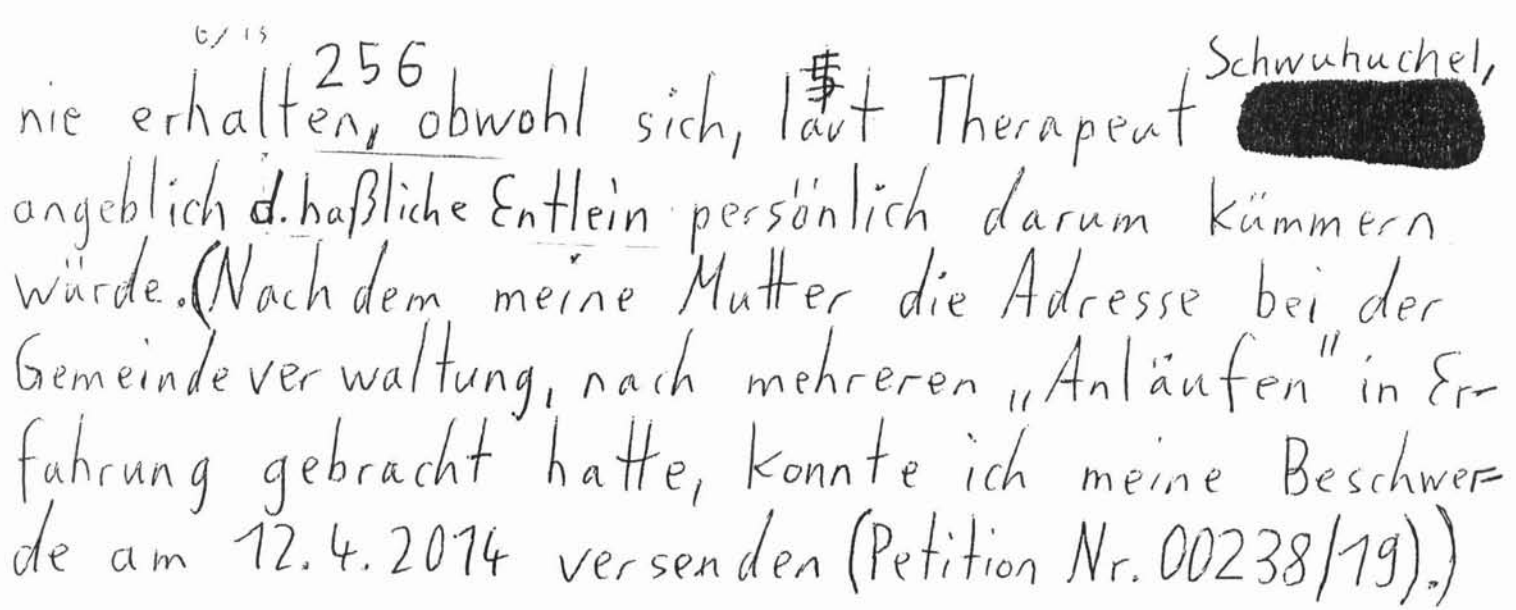 6/15
256
Schwuhuchel,
nie erhalten, obwohl sich, laut Therapeut
angeblich d. haßliche Entlein persönlich darum kümmern
würde. (Nachdem meine Mutter die Adresse bei der
Gemeindeverwaltung, nach mehreren „Anläufen" in Er-
fahrung gebracht hatte, konnte ich meine Beschwer=
de am 12.4.2014 versenden (Petition Nr. 00238/19).)